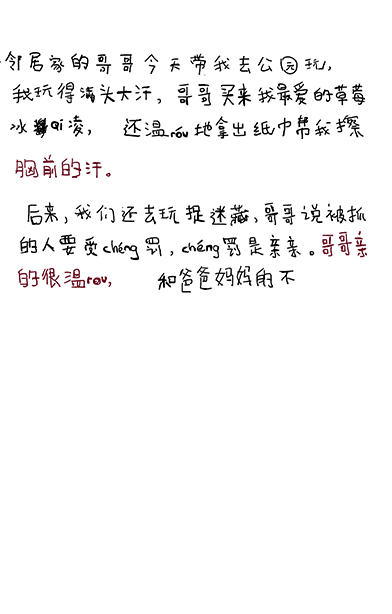 邻居家的哥哥今天带我去公园玩，
我玩得满头大汗，哥哥买来我最爱的草莓
冰qi凌，还温róu地拿出纸巾帮我擦
胸前的汗。
后来，我们还去玩捉迷藏，哥哥说被抓
的人要受chéng罚，chéng罚是亲亲。哥哥亲
的很温rou，和爸爸妈妈的不